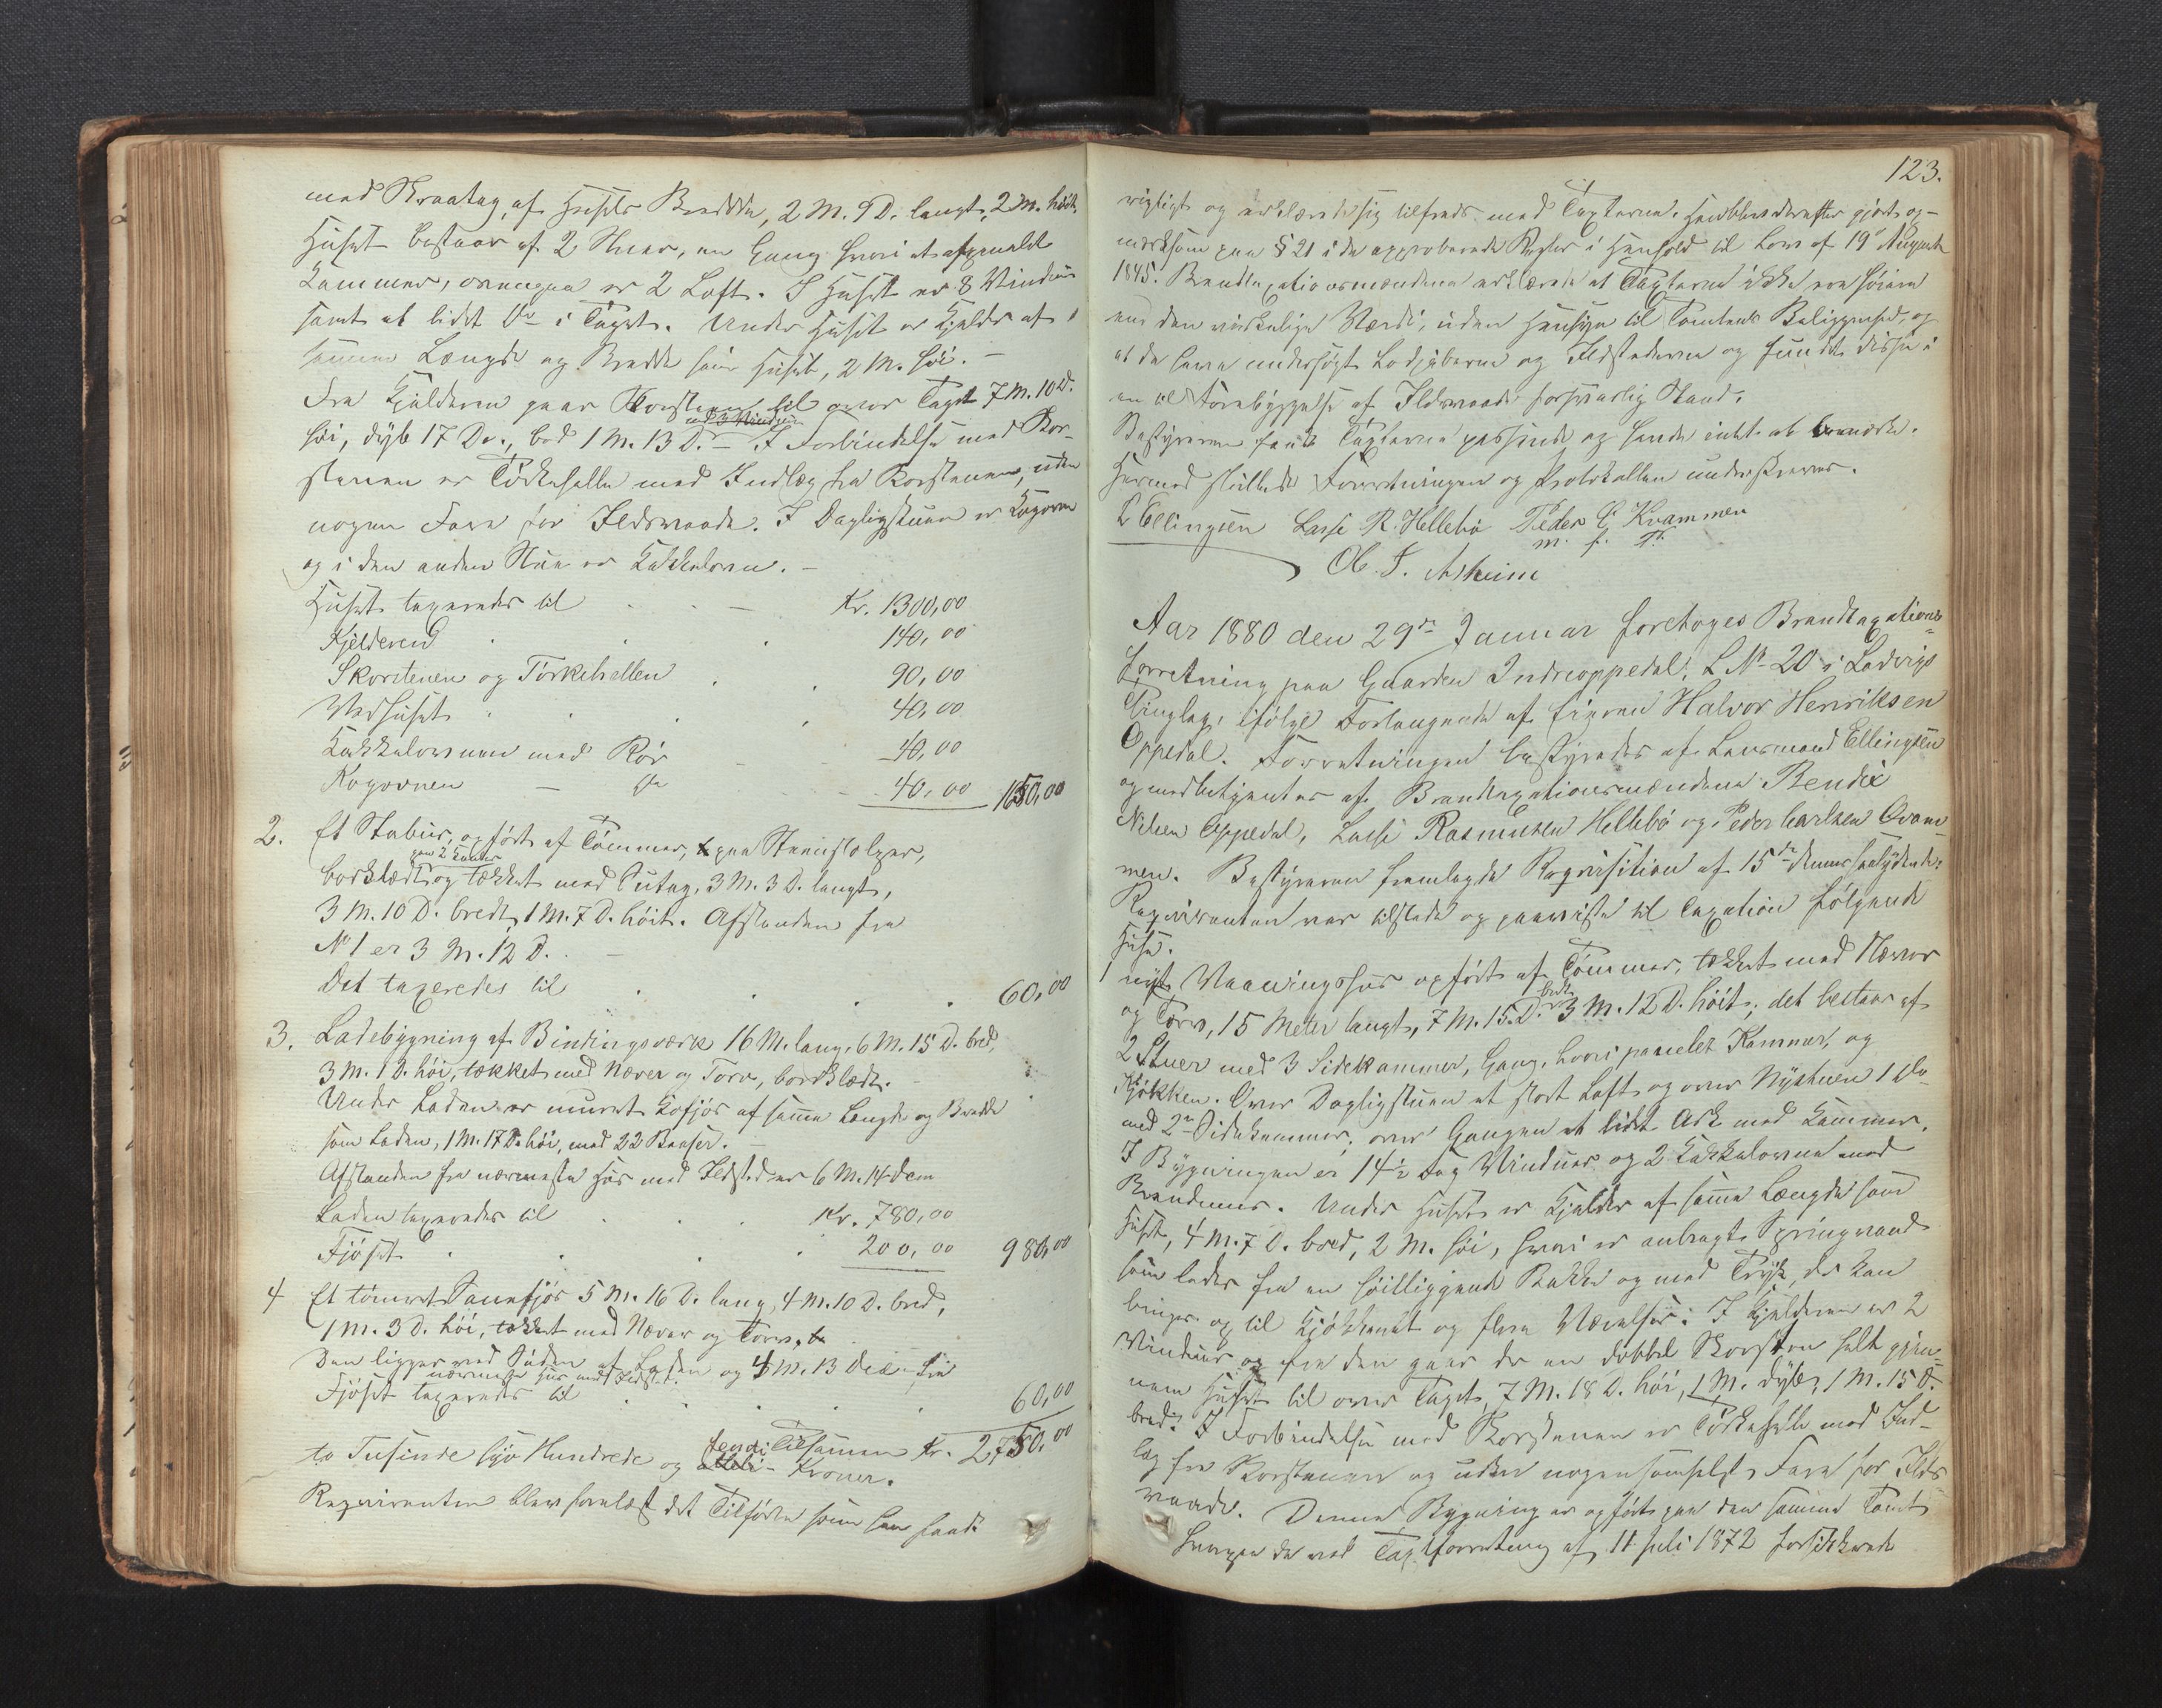 med Skraatag, af Husets Bredde, 2 M. 9 D. langt, 2 M. høit.
Huset bestaar af 2 Stuer, en Gang hvori et afpanelet
Kammer, ovenpaa er 2 Loft. I Huset er 8 Vinduer
samt et lidet Do i Taget. Under Huset er Kjelder af
samme Længde og Bredde som Huset, 2 M. høi. –
Fra Kjelderen gaar Skorstenen til over Taget 7 M. 10 D.
høi, dyb 17 De., bred 1 M. 13 D. – I Forbindelse med Skor-
stenen er Törkehelle med Indlæg fra Skorstenen, uden
nogen Fare for Ildsvaade. I Dagligstuen er Kogovn
og i den anden Stue er Kakkelovn. –
Huset taxeredes til . . – Kr. 1300,00
Kjelderen . . . 140,00
Skorstenen og Törkehellen . . 90,00
Vedhuset . . . . 40,00
Kakkelovnen med Rör – – 40,00
Kogovnen – Do – 40,00 1650,00
2. Et Stabur, opført af Tömmer, paa Stenstolper,
bordklædt paa 2 Kanter og tækket med Sutag, 3 M. 3 D. langt,
3 M. 10 D. bredt, 1 M. 7 D. høit. Afstanden fra
No 1 er 3 M. 12 D. . –
Det taxeredes til . . . . 60,00
3. Ladebygning af Bindingsværk 16 M. lang, 6 M. 15 D. bred,
3 M. 1 D. høi, tækket med Næver og Torv, bordklædt. –
Under Laden er muret Kofjös af samme Længde og Bredde
som Laden, 1 M. 17 D. høi, med 22 Baaser. –
Afstanden fra nærmeste Hus med Ildsted er 6 M. 14 Dem
Laden taxeredes til . . . Kr. 780,00
Fjöset . . . . 200,00 980,00
4 Et tömret Sauefjös 5 M. 16 D. lang, 4 M. 10 D. bred,
1 M. 3 D. høi, tækket med Næver og Torv.
Den ligger ved Siden af Laden og 4 M. 13 Dec. fra
nærmeste Hus med Ildsted.
Fjöset taxeredes til . . . . 60,00
Tilsammen Kr. 2,750,00
to Tusinde syv Hundrede og femti Kroner.
Rekvirenten blev forelæst det Tilførte som han fandt
123.
rigtigt og erklærede sig tilfreds med Taxterne. Han blev derefter gjort op-
mærksom paa § 21 i de approberede Regler i Henhold til Lov af 19de August
1845. Brandtaxationsmændene erklærede at Taxterne ikke ere höiere
end den virkelige Værdi, uden Hensyn til Tomtens Beliggenhed, og
at de have undersøgt Lodpiberne og Ildstederne og fundet disse i
en til Forebyggelse af Ildsvaade forsvarlig Stand.
Bestyreren fandt Taxterne passende og havde intet at bemærke.
Hermed sluttedes Forretningen og Protokollen underskreves.
L Ellingsen Lasse R. Hellebö Peder C. Kvammen
m. f. P.
Ol. J. Asheim
Aar 1880 den 29de Januar foretoges Brandtaxations-
forretning paa Gaarden Indreoppedal, L No 20 i Ladvigs
Thinglag, ifølge Forlangende af Eieren Halvor Henriksen
Oppedal. Forretningen bestyredes af Lensmand Ellingsen
og medbetjentes af Brandtaxationsmændene Bendix
Nilsen Oppedal, Lasse Rasmussen Hellebö og Peder Carlsen Qvam-
men. Bestyreren fremlagde Reqvisition af 15de dennes saalydende:
Reqvirenten var tilstede og paaviste til Taxation følgende
Huse.
1 nyt Vaaningshus opført af Tömmer, tækket med Næver
og Torv, 15 Meter langt, 7 M. 15 D. bredt, 3 M. 12 D. høit; det bestaar af
2 Stuer med 3 Sidekammer, Gang, hvori panelet Kammer, og
Kjökken. Over Dagligstuen et stort Loft og over Nystuen 1 Do
med 2de Sidekammer, over Gangen et lidet Ark med Kammer.
I Bygningen er 14½ Fag Vinduer og 2 Kakkelovne med
Brandmur. Under Huset er Kjelder af samme Længde som
Huset, 4 M. 7 D. bred, 2 M. høi, hvori er anbragt Springvand
som ledes fra en høitliggende Bække og med Tryk, der kan
bringes op til Kjökkenet og flere Værelser. I Kjelderen er 2
Vinduer og fra den gaar der en dobbel Skorsten helt gjen-
nem Huset til over Taget, 7 M. 18 D. høi, 1 M. dyb, 1 M. 15 D.
bred. I Forbindelse med Skorstenen er Törkehelle med Ind-
læg fra Skorstenen og uden nogensomhelst Fare for Ilds-
vaade. Denne Bygning er opført paa den samme Tomt
hvorpaa de ved Taxtforretning af 11 Juli 1872 forsikkrede